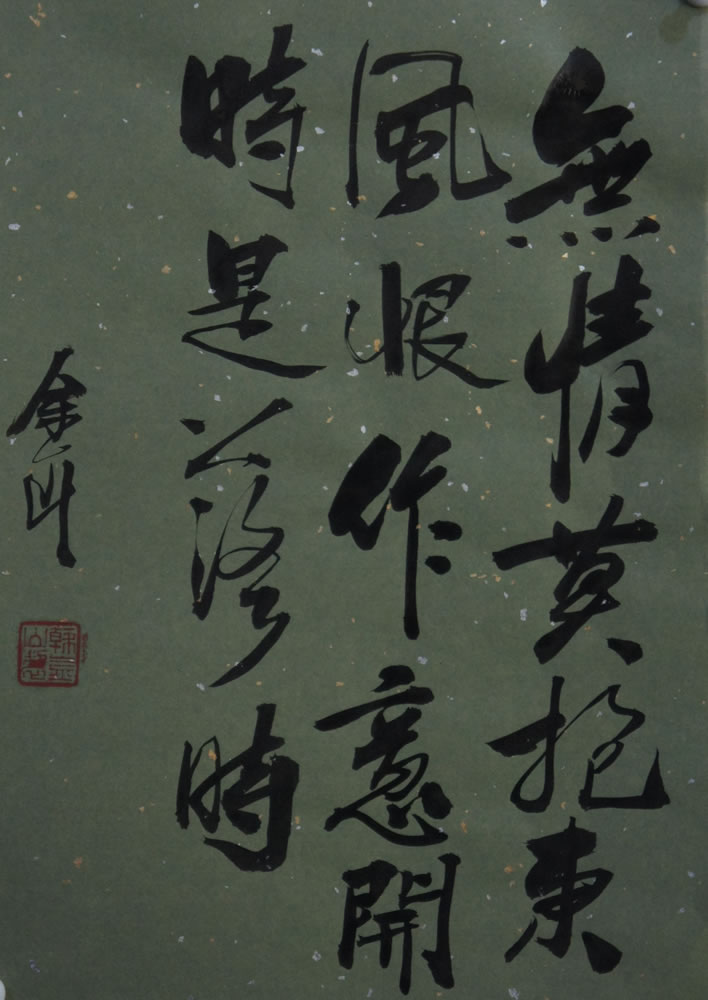 無情莫抱東
風恨作意開
時是落時
余